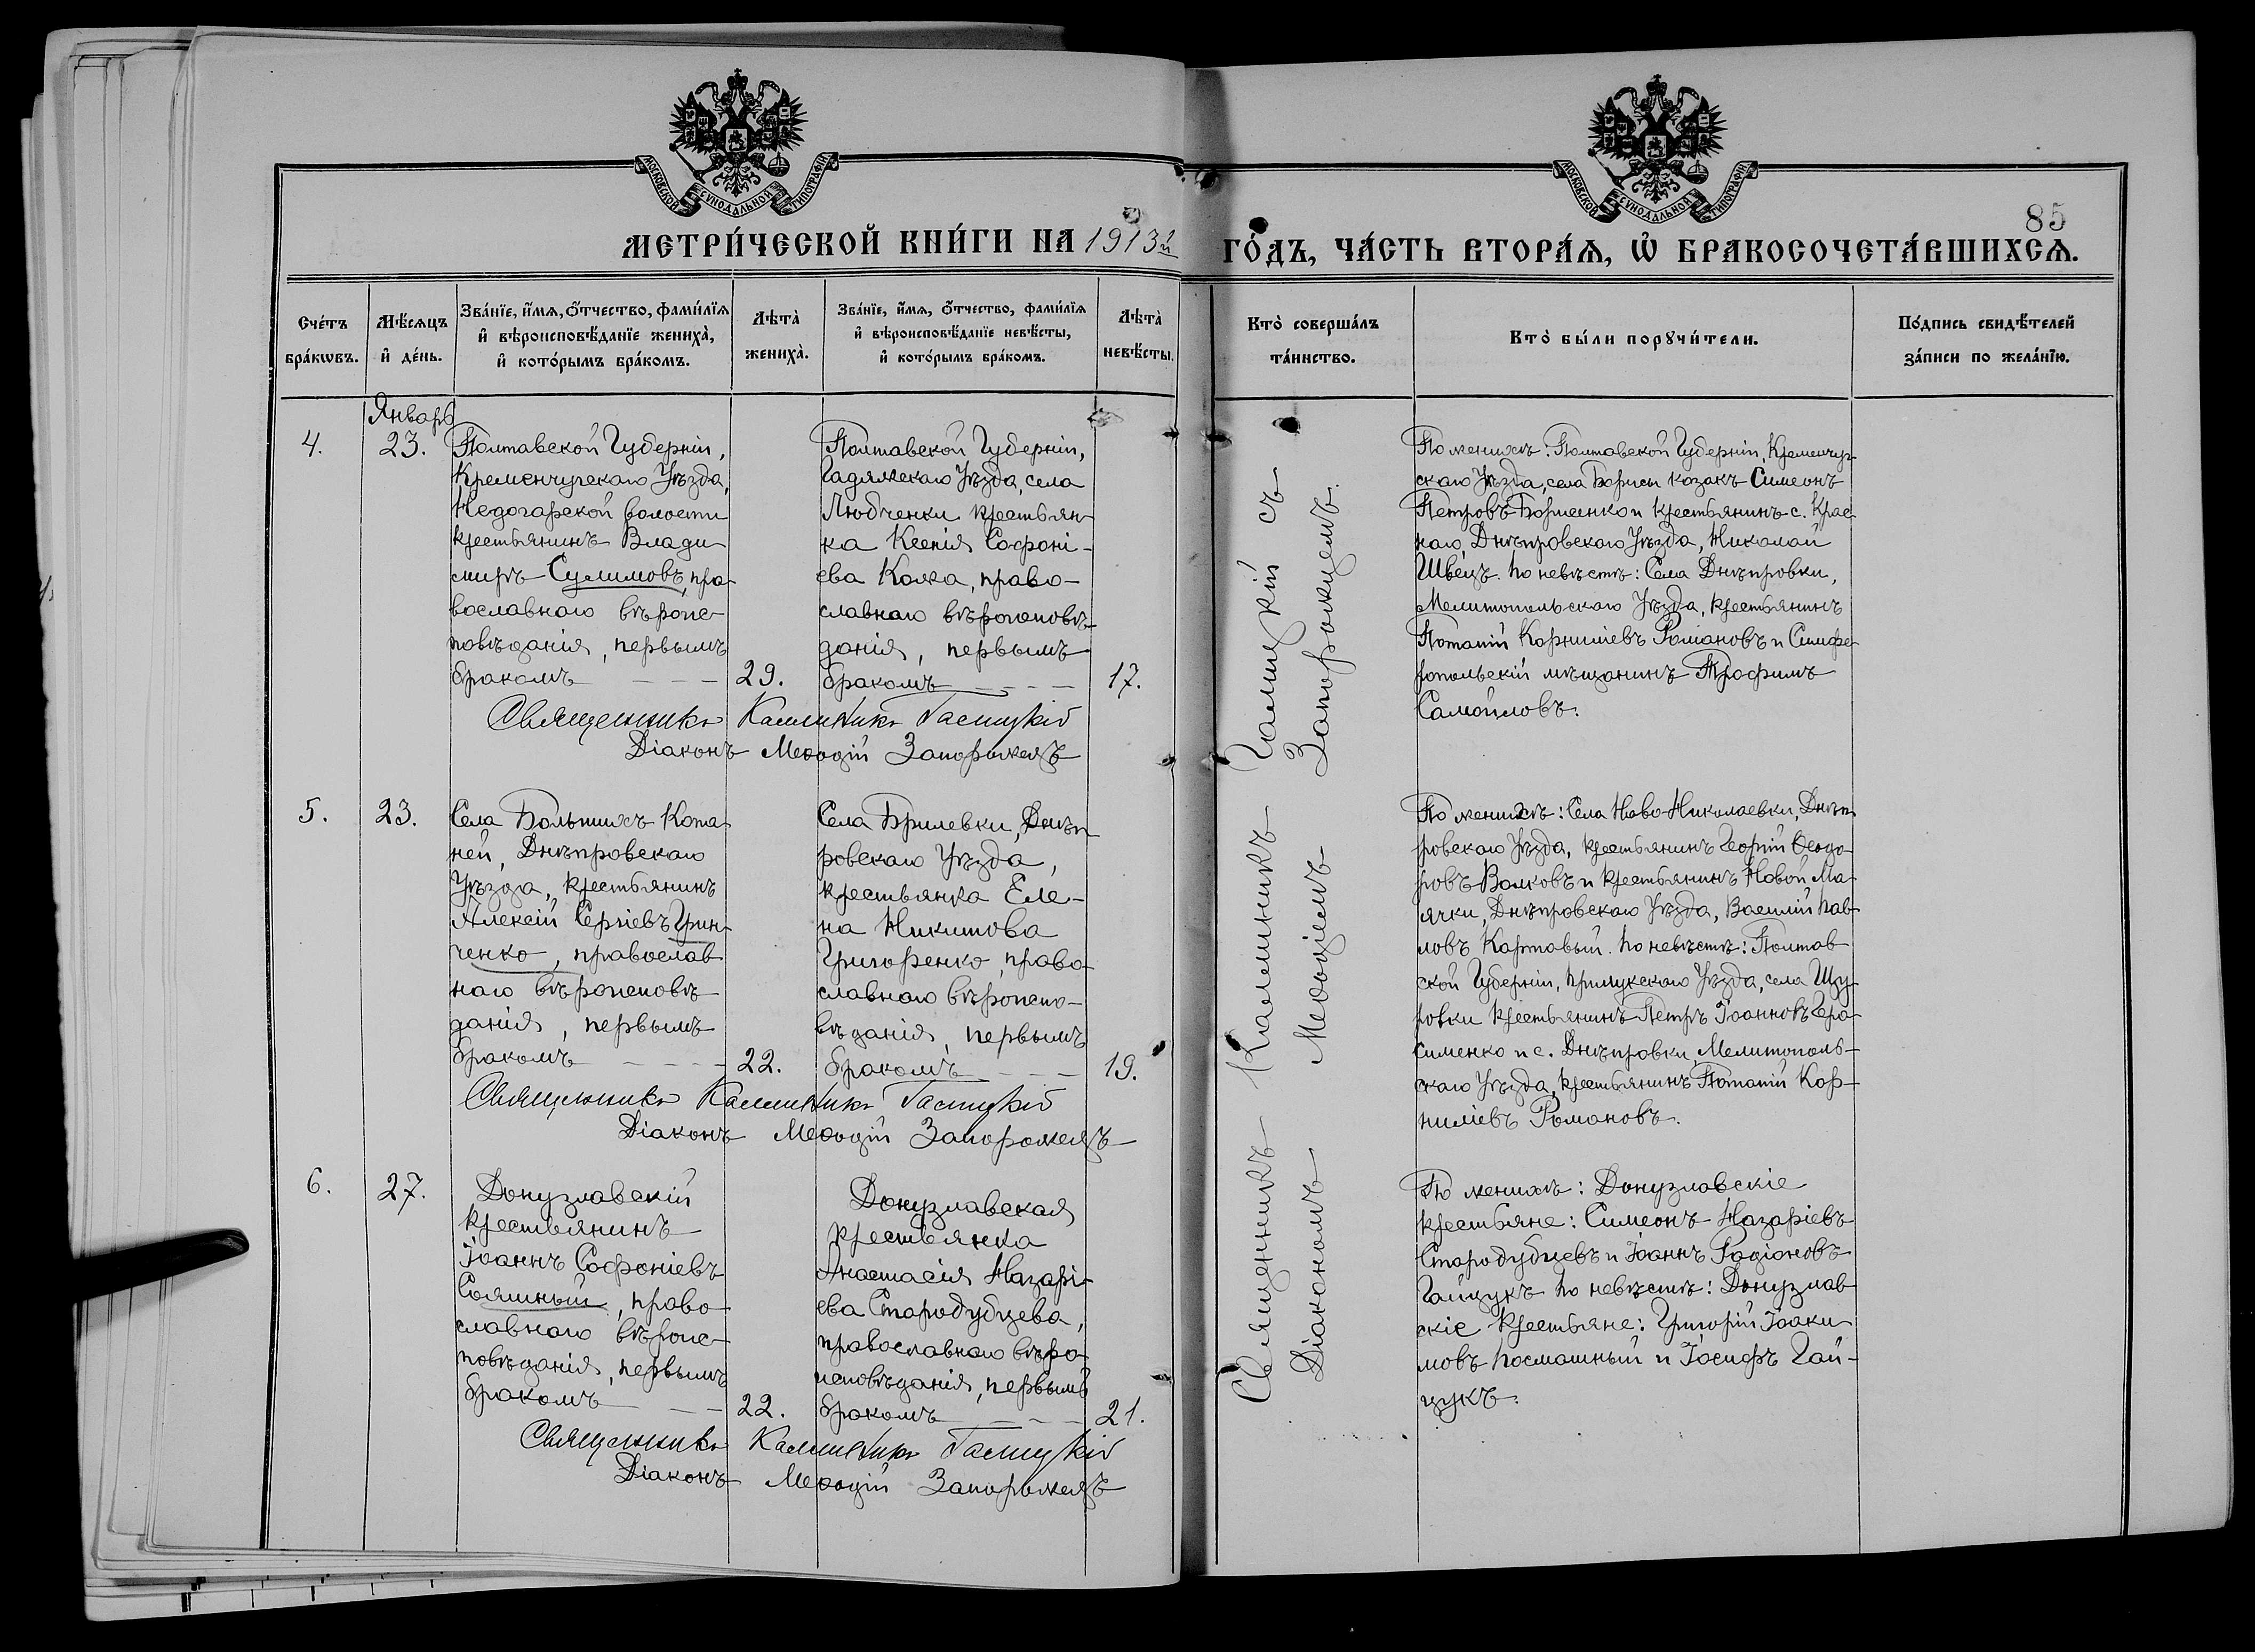 МОСКОВСКОЙ СУНОДАЛЬНОЙ ТИПОГРАФІИ
МОСКОВСКОЙ СУНОДАЛЬНОЙ ТИПОГРАФІИ
85
МЕТРИ́ЧЕСКОЙ КНИ́ГИ НА 1913й
ГО́ДЪ, ЧА́СТЬ ВТОРА́Ѧ, Ѡ БРАКОСОЧЕТА́ВШИХСѦ.
Сче́тъ бра́кѡвъ.
Мѣ́сѧцъ и҆ де́нь.
Зва́нїе, и҆́мѧ, ѻ҆́тчество, фами́лїѧ
и҆ вѣроисповѣ́данїе жениха̀,
и҆ кото́рымъ бра́комъ.
Лѣта̀ жениха̀.
Зва́нїе, и҆́мѧ, ѻ҆́тчество, фами́лїѧ
и҆ вѣроисповѣ́данїе невѣ́сты,
и҆ кото́рымъ бра́комъ.
Лѣта̀ невѣ́сты.
Кто̀ соверша́лъ
та́инство.
Кто̀ бы́ли порꙋчи́тели.
По́дпись свидѣ́телей
за́писи по жела́нїю.
Январь
4.
23.
Полтавской Губерніи,
Кременчугскаго Уѣзда,
Недогарской волости
крестьянинъ Влади
миръ Сулимовъ, пра-
вославнаго вѣроис-
повѣданія, первымъ
бракомъ
29.
Полтавской Губерніи,
Гадячскаго Уѣзда, села
Лютенки крестьян-
ка Ксенія Софоні-
ева Кояка, право-
славнаго вѣроисповѣ-
данія, первымъ
бракомъ
17.
Священникъ Каллиникъ Галицкій
Діаконъ Меѳодій Запорожецъ
По женихѣ: Полтавской Губерніи, Кременчуг-
скаго Уѣзда, села Борисы козакъ Симеонъ
Петровъ Борисенко и крестьянинъ с. Крас
наго, Днѣпровскаго Уѣзда, Николай
Швецъ. По невѣстѣ: Села Днѣпровки,
Мелитопольскаго Уѣзда, крестьянинъ
Потапій Корниліевъ Романовъ и Симфе-
ропольскій мѣщанинъ Трофимъ
Самойловъ.
5.
23.
Села Большихъ Копа-
ней, Днѣпровскаго
Уѣзда, крестьянинъ
Алексій Сергіевъ Грин-
ченко, православ
наго вѣроисповѣ-
данія, первымъ
бракомъ
22.
Села Брилевки, Днѣп-
ровскаго Уѣзда,
крестьянка Еле-
на Никитова
Григоренко, право-
славнаго вѣроиспо-
вѣданія, первымъ
бракомъ
19.
Священникъ Каллиникъ Галицкій
Діаконъ Меѳодій Запорожецъ
По женихѣ: Села Ново-Николаевки, Днѣп-
ровскаго Уѣзда, крестьянинъ Георгій Ѳеодо-
ровъ Волковъ и крестьянинъ Новой Ма-
ячки, Днѣпровскаго Уѣзда, Василій Пав
ловъ Картавый. По невѣстѣ: Полтав
ской Губерніи, Прилукскаго Уѣзда, села Щу-
ровки крестьянинъ Петръ Іоанновъ Гера-
сименко и с. Днѣпровки, Мелитополь-
скаго Уѣзда, крестьянинъ Потапій Кор-
ниліевъ Романовъ.
6.
27.
Донузлавскій
крестьянинъ
Іоаннъ Софоніевъ
Солшный, право-
славнаго вѣроис-
повѣданія, первымъ
бракомъ
22.
Донузлавская
крестьянка
Анастасія Назарі-
ева Стародубцева,
православнаго вѣро-
исповѣданія, первымъ
бракомъ
21.
Священникъ Каллиникъ Галицкій
Діаконъ Меѳодій Запорожецъ
По женихѣ: Донузлавскіе
крестьяне: Симеонъ Назаріевъ
Стародубцевъ и Іоаннъ Родіоновъ
Гайцукъ. По невѣстѣ: Донузлав
скіе крестьяне: Григорій Іоаки
мовъ Посмашный и Іосифъ Гай-
цукъ.
Священникъ Каллиникъ Галицкій съ
Діакономъ Меѳодіемъ Запорожцемъ.